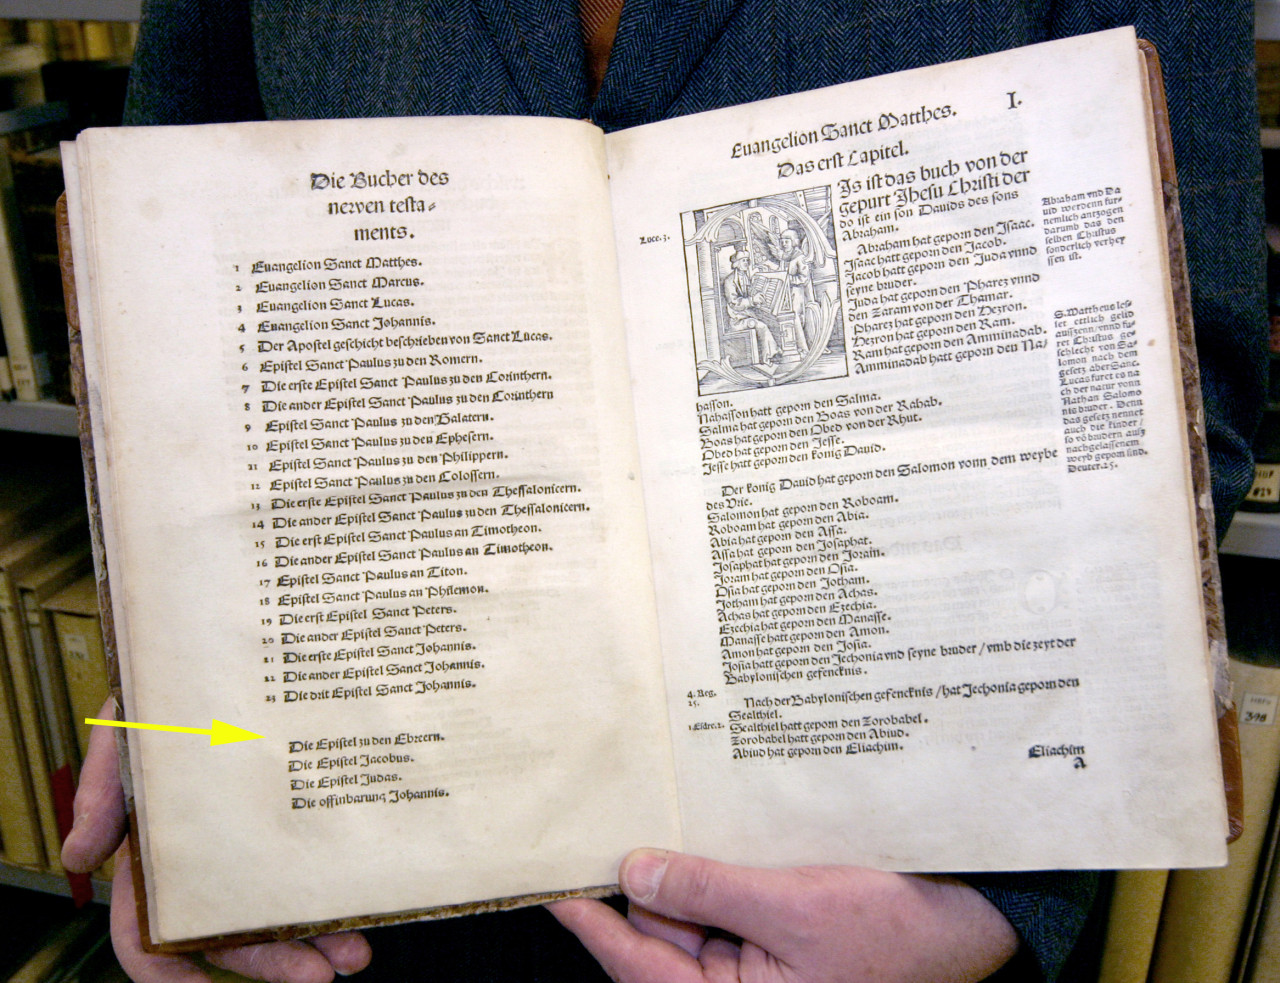 Die Bucher des
newen testa⸗
ments.
1 Euangelion Sanct Matthes.
2 Euangelion Sanct Marcus.
3 Euangelion Sanct Lucas.
4 Euangelion Sanct Johannis.
5 Der Apostel geschicht beschrieben von Sanct Lucas.
6 Epistel Sanct Paulus zu den Romern.
7 Die erste Epistel Sanct Paulus zu den Corinthern.
8 Die ander Epistel Sanct Paulus zu den Corinthern
9 Epistel Sanct Paulus zu den Galatern.
10 Epistel Sanct Paulus zu den Ephesern.
11 Epistel Sanct Paulus zu den Philippern.
12 Epistel Sanct Paulus zu den Colossern.
13 Die erste Epistel Sanct Paulus zu den Thessalonicern.
14 Die ander Epistel Sanct Paulus zu den Thessalonicern.
15 Die erst Epistel Sanct Paulus an Timotheon.
16 Die ander Epistel Sanct Paulus an Timotheon.
17 Epistel Sanct Paulus an Titon.
18 Epistel Sanct Paulus an Philemon.
19 Die erst Epistel Sanct Peters.
20 Die ander Epistel Sanct Peters.
21 Die erste Epistel Sanct Johannis.
22 Die ander Epistel Sanct Johannis.
23 Die drit Epistel Sanct Johannis.
Die Epistel zu den Ebreern.
Die Epistel Jacobus.
Die Epistel Judas.
Die offinbarung Johannis.
Euangelion Sanct Matthes. I.
Das erst Capitel.
Luce. 3.
Js ist das buch von der
gepurt Jhesu Christi der
do ist ein son Dauids des sons
Abraham.
Abraham hat geporn den Jsaac.
Jsaac hatt geporn den Jacob.
Jacob hatt geporn den Juda vnnd
seyne bruder.
Juda hat geporn den Pharez vnnd
den Zaram von der Thamar.
Pharez hat geporn den Hezron.
Hezron hat geporn den Ram.
Ram hat geporn den Amminadab.
Amminadab hatt geporn den Na⸗
hasson.
Nahasson hatt geporn den Salma.
Salma hat geporn den Boas von der Rahab.
Boas hat geporn den Obed von der Rhut.
Obed hat geporn den Jesse.
Jesse hatt geporn den konig Dauid.
Der konig Dauid hat geporn den Salomon vonn dem weybe
des Vrie.
Salomon hat geporn den Roboam.
Roboam hat geporn den Abia.
Abia hat geporn den Assa.
Assa hat geporn den Josaphat.
Josaphat hat geporn den Joram.
Joram hat geporn den Osia.
Osia hat geporn den Jotham.
Jotham hat geporn den Achas.
Achas hat geporn den Ezechia.
Ezechia hat geporn den Manasse.
Manasse hatt geporn den Amon.
Amon hat geporn den Josia.
Josia hatt geporn den Jechonia vnd seyne bruder / vmb die zeyt der
Babylonischen gefencknis.
4. Reg.
25.
Nach der Babylonischen gefencknis / hat Jechonia geporn den
Sealthiel.
1. Esdre. 2.
Sealthiel hatt geporn den Zorobabel.
Zorobabel hatt geporn den Abiud.
Abiud hat geporn den Eliachim.
Eliachim
A
Abraham vnd Da
uid werdenn fur⸗
nemlich anzogen
darumb das den
selben Christus
sonderlich verhey
ssen ist.
S. Mattheus les⸗
set ettlich gelid
aussenn / vnnd fu⸗
ret Christus ge⸗
schlecht von Sa⸗
lomon nach dem
gesetz aber Sanc.
Lucas furet es na
ch der natur vonn
Nathan Salomo
nis bruder. Denn
das gesetz nennet
auch die kinder /
so vō brudern auß
nachgelassenem
weyb geporn sind.
Deuter. 25.